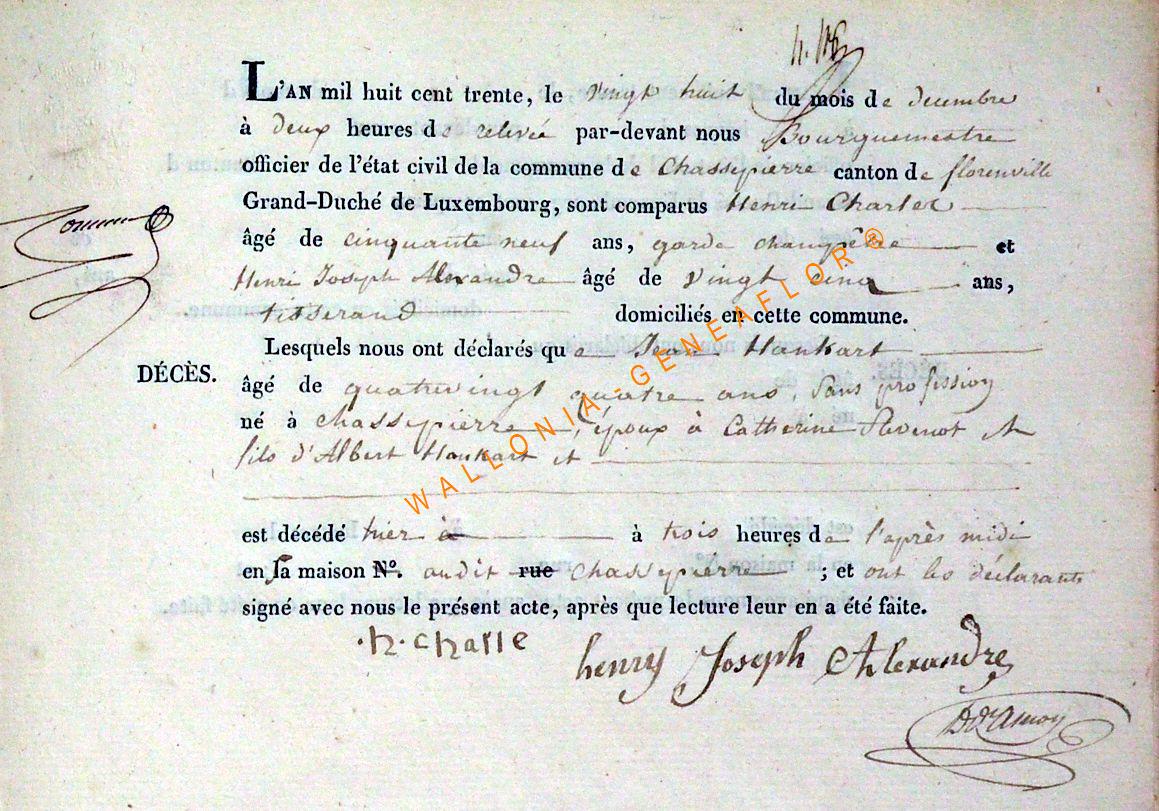 L'AN mil huit cent trente, le vingt huit du mois de decembre
à deux heures de relevée par-devant nous Bourguemestre
officier de l'état civil de la commune de Chassepierre canton de florenville
Grand-Duché de Luxembourg, sont comparus Henri Charlet
âgé de cinquante neuf ans, garde champêtre et
Henri Joseph Alexandre âgé de vingt cinq ans,
tisserand domiciliés en cette commune.
Lesquels nous ont déclarés que Jean Hankart
DÉCÈS.
âgé de quatrevingt quatre ans, sans profession
né à chassepierre, époux à Catherine et
fils d'Albert Hankart et
est décédé hier à à trois heures de l'après midi
en sa maison N°. audit rue chassepierre ; et ont les déclarants
signé avec nous le présent acte, après que lecture leur en a été faite.
henry Joseph Alexandre
WALLONIA-GENEAFLOR®